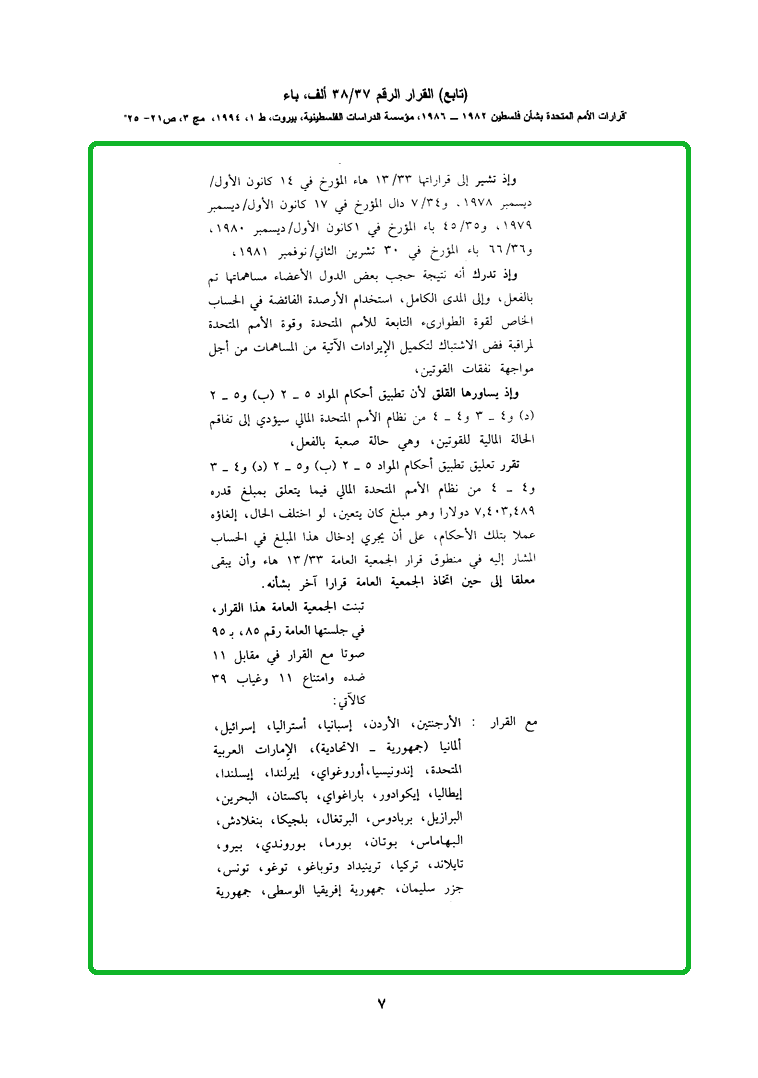 (تابع) القرار الرقم ٣٨/٣٧ ألف، باء
"قرارات الأمم المتحدة بشأن فلسطين ١٩٨٢ ــ ١٩٨٦، مؤسسة الدراسات الفلسطينية، بيروت، ط ١، ١٩٩٤، مج ٣، ص٢١- ٢٥"
وإذ تشير إلى قراراتها ١٣/٣٣ هاء المؤرخ في ١٤ كانون الأول/
ديسمبر ١٩٧٨، و٧/٣٤ دال المؤرخ في ١٧ كانون الأول/ديسمبر
١٩٧٩، و٤٥/٣٥ باء المؤرخ في ١كانون الأول/ديسمبر ١٩٨٠،
و٦٦/٣٦ باء المؤرخ في ٣٠ تشرين الثاني/نوفمبر ١٩٨١،
وإذ تدرك أنه نتيجة حجب بعض الدول الأعضاء مساهماتها تم
بالفعل، وإلى المدى الكامل، استخدام الأرصدة الفائضة في الحساب
الخاص لقوة الطوارىء التابعة للأمم المتحدة وقوة الأمم المتحدة
لمراقبة فض الاشتباك لتكميل الإيرادات الآتية من المساهمات من أجل
مواجهة نفقات القوتين،
وإذ يساورها القلق لأن تطبيق أحكام المواد ٥ ــ ٢ (ب) و٥ ــ ٢
(د) و٤ ــ ٣ و٤ ــ ٤ من نظام الأمم المتحدة المالي سيؤدي إلى تفاقم
الحالة المالية للقوتين، وهي حالة صعبة بالفعل،
تقرر تعليق تطبيق أحكام المواد ٥ ــ ٢ (ب) و٥ ــ ٢ (د) و٤ ــ ٣
و٤ ــ ٤ من نظام الأمم المتحدة المالي فيما يتعلق بمبلغ قدره
٧,٤٠٣,٤٨٩ دولارا وهو مبلغ كان يتعين، لو اختلف الحال، إلغاؤه
عملا بتلك الأحكام، على أن يجري إدخال هذا المبلغ في الحساب
المشار إليه في منطوق قرار الجمعية العامة ١٣/٣٣ هاء وأن يبقى
معلقا إلى حين اتخاذ الجمعية العامة قرارا آخر بشأنه.
تبنت الجمعية العامة هذا القرار،
في جلستها العامة رقم ٨٥، بـ ٩٥
صوتا مع القرار في مقابل ١١
ضده وامتناع ١١ وغياب ٣٩
كالآتي:
مع القرار : الأرجنتين، الأردن، إسبانيا، أستراليا، إسرائيل،
ألمانيا (جمهورية ــ الاتحادية)، الإمارات العربية
المتحدة، إندونيسيا،أوروغواي، إيرلندا، إيسلندا،
إيطاليا، إيكوادور، باراغواي، باكستان، البحرين،
البرازيل، بربادوس، البرتغال، بلجيكا، بنغلادش،
البهاماس، بوتان، بورما، بوروندي، بيرو،
تايلاند، تركيا، ترينيداد وتوباغو، توغو، تونس،
جزر سليمان، جمهورية إفريقيا الوسطى، جمهورية
٧